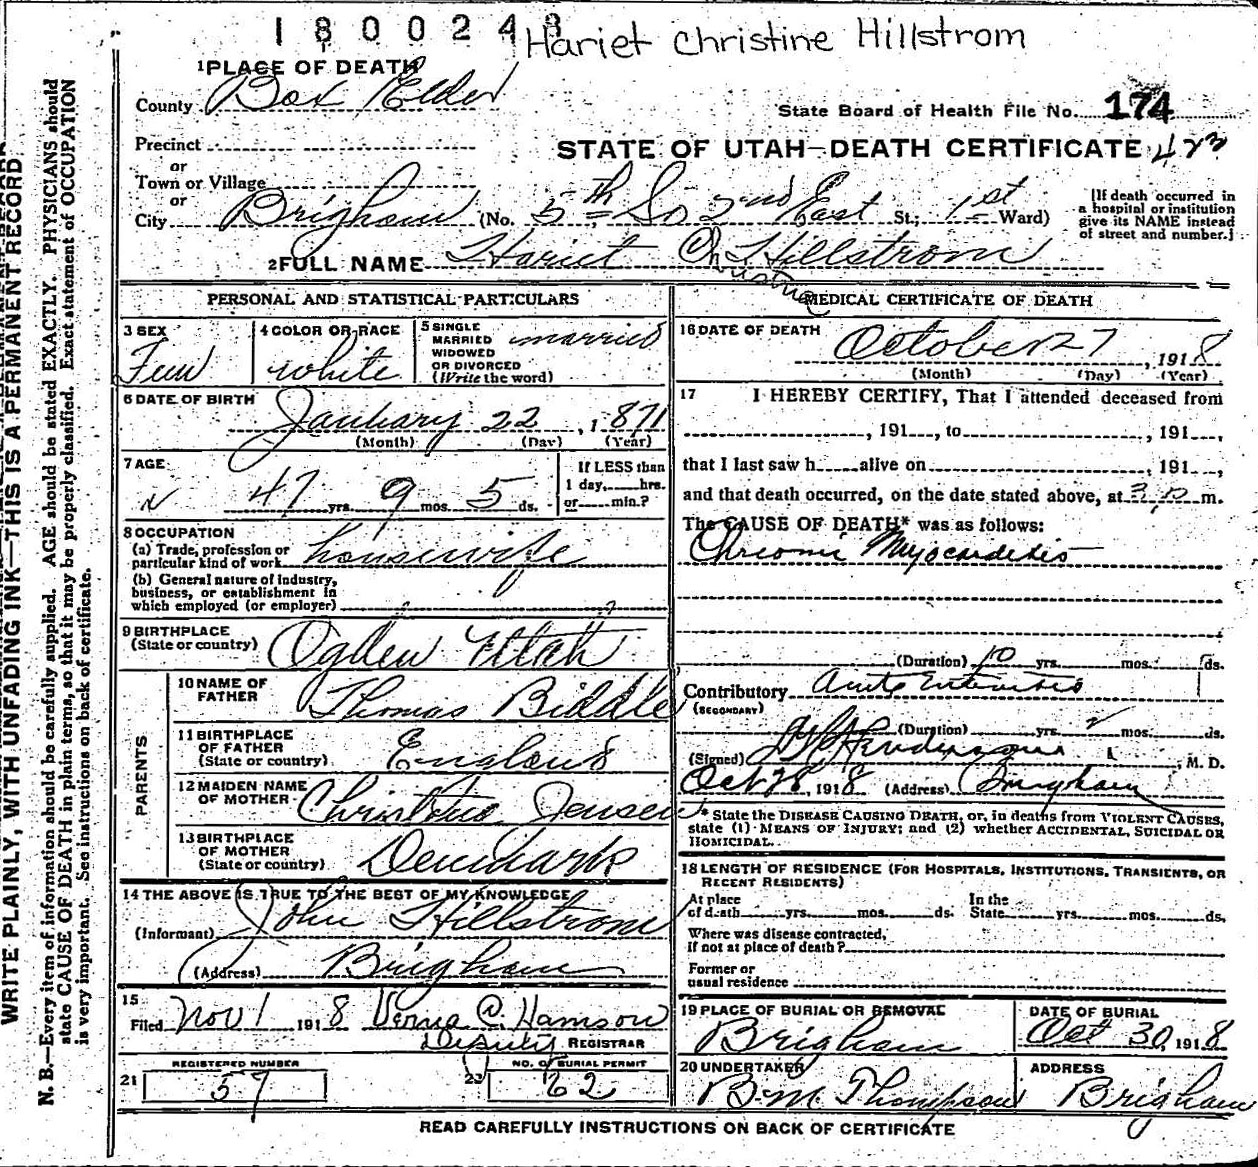 1800248
Hariet Christine Hillstrom
1 PLACE OF DEATH
County Box Elder
State Board of Health File No. 174
Precinct
or
STATE OF UTAH—DEATH CERTIFICATE 423
Town or Village
or
City Brigham (No. 5th So 2nd East St.; 1st Ward)
[If death occurred in
a hospital or institution
give its NAME instead
of street and number.]
2 FULL NAME Hariet Ch. Hillstrom
Christina
PERSONAL AND STATISTICAL PARTICULARS
3 SEX
Fem
4 COLOR OR RACE
white
5 SINGLE
MARRIED
WIDOWED
OR DIVORCED
(Write the word)
married
6 DATE OF BIRTH
January 22, 1871
(Month) (Day) (Year)
7 AGE
47 yrs. 9 mos. 5 ds.
If LESS than
1 day, hrs.
or min.?
8 OCCUPATION
(a) Trade, profession or
particular kind of work housewife
(b) General nature of industry,
business, or establishment in
which employed (or employer)
9 BIRTHPLACE
(State or country) Ogden Utah
PARENTS
10 NAME OF
FATHER Thomas Biddle
11 BIRTHPLACE
OF FATHER
(State or country) England
12 MAIDEN NAME
OF MOTHER Jensen
13 BIRTHPLACE
OF MOTHER
(State or country) Denmark
14 THE ABOVE IS TRUE TO THE BEST OF MY KNOWLEDGE
(Informant) John Hillstrom
(Address) Brigham
15
Filed Nov 1 1918
Deputy REGISTRAR
REGISTERED NUMBER
21 57
NO. OF BURIAL PERMIT
22 62
MEDICAL CERTIFICATE OF DEATH
16 DATE OF DEATH
October 27, 1918
(Month) (Day) (Year)
17 I HEREBY CERTIFY, That I attended deceased from
, 191 , to , 191 ,
that I last saw h alive on , 191 ,
and that death occurred, on the date stated above, at m.
The CAUSE OF DEATH* was as follows:
Chronic Myocarditis
(Duration) 10 yrs. mos. ds.
Contributory Acute Enteritis
(SECONDARY)
(Duration) yrs. mos. ds.
(Signed) , M. D.
Oct 28, 1918 (Address) Brigham
* State the DISEASE CAUSING DEATH, or, in deaths from VIOLENT CAUSES,
state (1) MEANS OF INJURY; and (2) whether ACCIDENTAL, SUICIDAL OR
HOMICIDAL.
18 LENGTH OF RESIDENCE (FOR HOSPITALS, INSTITUTIONS, TRANSIENTS, OR
RECENT RESIDENTS)
At place
of death yrs. mos. ds.
In the
State yrs. mos. ds.
Where was disease contracted,
If not at place of death?
Former or
usual residence
19 PLACE OF BURIAL OR REMOVAL
Brigham
DATE OF BURIAL
Oct 30, 1918
20 UNDERTAKER
B. M. Thompson
ADDRESS
Brigham
READ CAREFULLY INSTRUCTIONS ON BACK OF CERTIFICATE
WRITE PLAINLY, WITH UNFADING INK—THIS IS A PERMANENT RECORD
N. B.—Every item of information should be carefully supplied. AGE should be stated EXACTLY. PHYSICIANS should
state CAUSE OF DEATH in plain terms, so that it may be properly classified. Exact statement of OCCUPATION
is very important. See instructions on back of certificate.